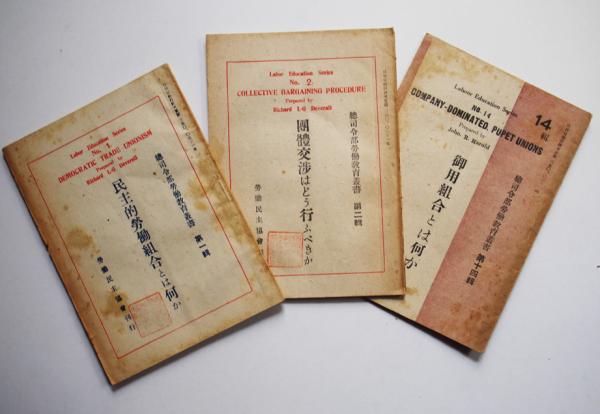 Labor Education Series
No. 1.
DEMOCRATIC TRADE UNIONISM
Prepared by
Richard L-G Deverall
總司令部勞働教育叢書 第一輯
民主的勞働組合とは何か
勞働民主協會刊行
Labor Education Series
No. 2.
COLLECTIVE BARGAINING PROCEDURE
Prepared by
Richard L-G Deverall
總司令部勞働教育叢書 第二輯
團體交渉はどう行ふべきか
勞働民主協會
Labore Education Series
No. 14
COMPANY-DOMINATED, PUPET UNIONS
Prepared by
John R. Harold
14輯
總司令部勞働教育叢書 第十四輯
御用組合とは何か